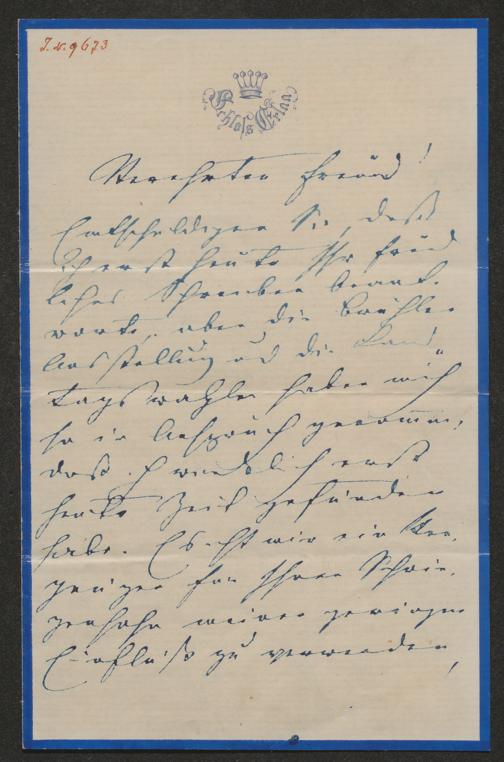 J.N. 9673
Schloss Erlaa
Verehrter Freund!
Entschuldigen Sie, dass
ich erst heute Ihr freund
liches Schreiben beant-
worte, aber die
Ausstellung und die Land
tagswahlen haben mich
so in Anspruch genommen,
dass ich wirklich erst
heute Zeit gefunden
habe. Es ist mir ein Ver-
gnügen für Ihren Schwie-
gersohn meinen geringen
Einfluß zu verwenden,